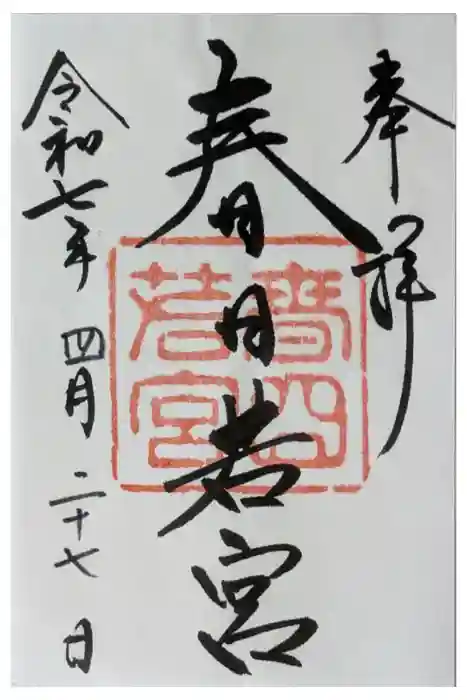 奉拝
春日若宮
春日
若宮
令和七年 四月 二十七日